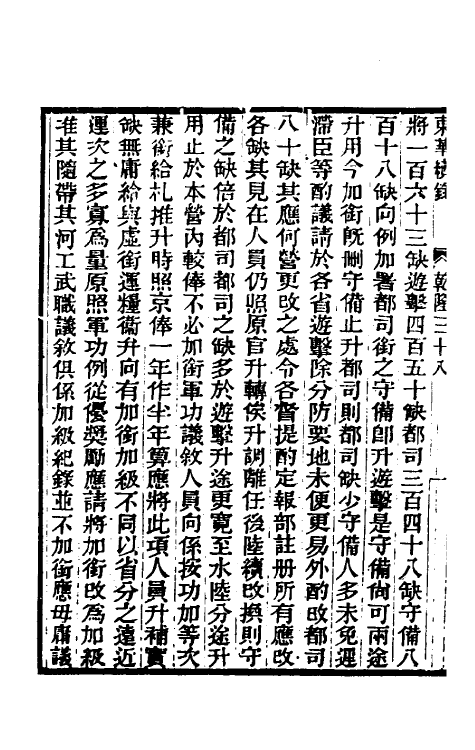 東華續錄 乾隆三十八 一
將一百六十三缺遊擊四百五十缺都司三百四十八缺守備八
百十八缺向例加署都司銜之守備即升遊擊是守備尙可兩途
升用今加銜旣刪守備止升都司則都司缺少守備人多未免遲
滯臣等酌議請於各省遊擊除分防要地未便更易外酌改都司
八十缺其應何營更改之處令各督提酌定報部註册所有應改
各缺其見在人員仍照原官升轉俟升調離任後陸續改換則守
備之缺倍於都司都司之缺多於遊擊升途更寬至水陸分途升
用止於本營內較俸不必加銜軍功議敘人員向係按功加等次
兼銜給札推升時照京俸一年作半年算應將此項人員升補實
缺無庸給與虛銜運糧衞升向有加銜加級不同以省分之遠近
運次之多寡爲量原照軍功例從優奬勵應請將加銜改爲加級
准其隨帶其河工武職議敘俱係加級紀錄並不加銜應毋庸議